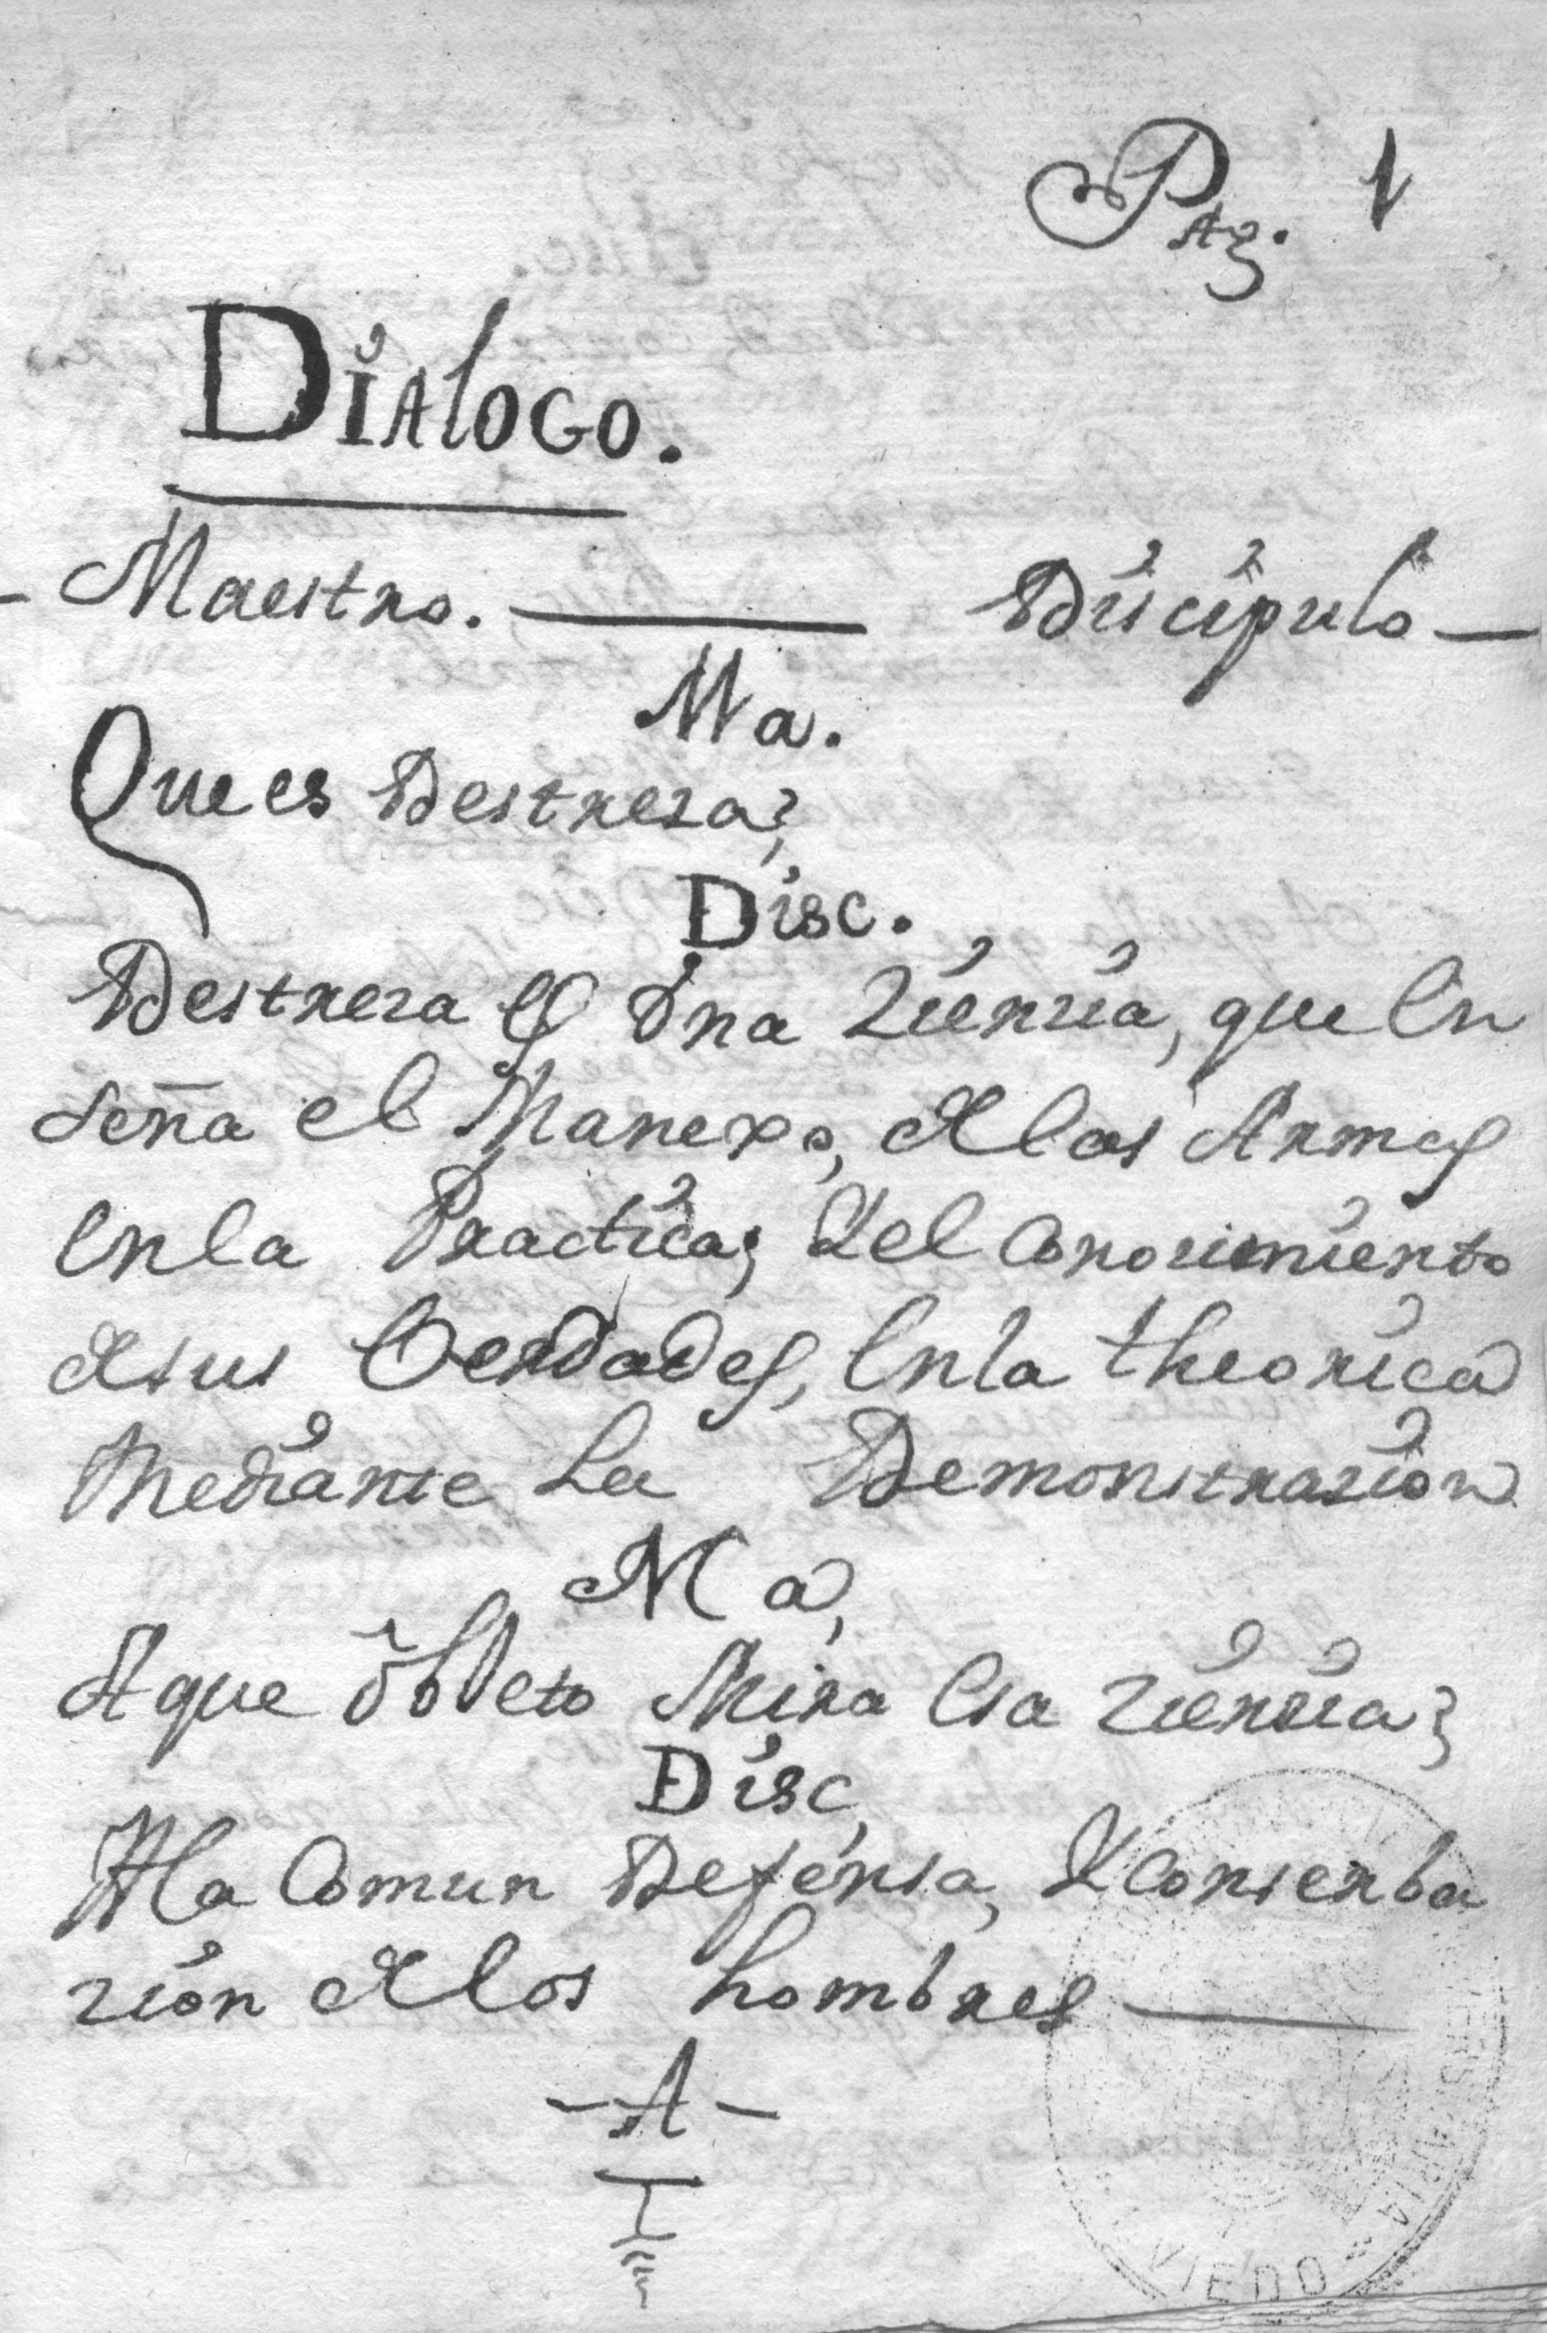 Pag. 1
Dialogo.
Maestro. Discipulo
Ma.
Que es Destreza?
Disc.
Destreza es Vna Zienzia, que en
seña el Manexo, de las Armas
en la Practica; Y el conozimiento
de sus Verdades, en la theorica
Mediante La Demonstrazion
Ma,
A que obIeto Mira esa zienzia?
Disc,
A la comun Defensa, Y conserba
zion de los hombres
- A -
VIEDO